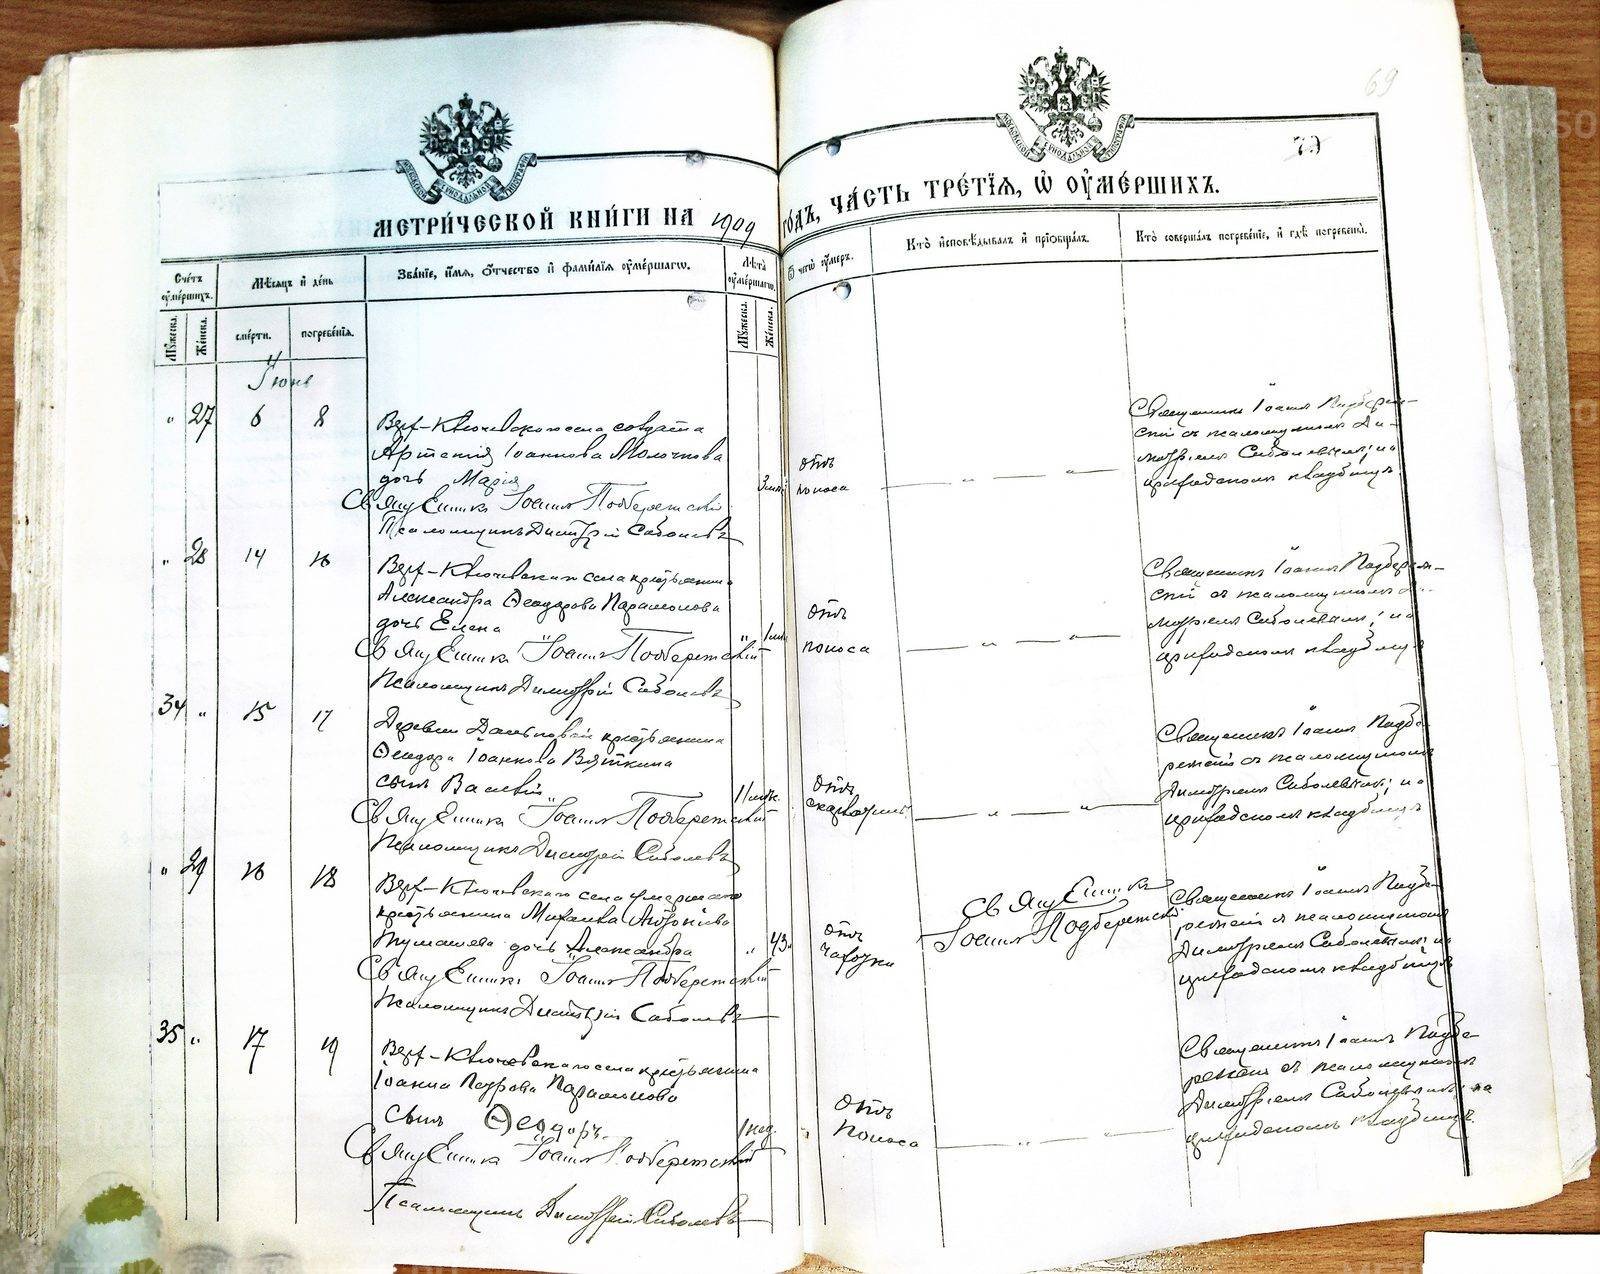 69
79
МЕТРИ́ЧЕСКОЙ КНИ́ГИ НА 1909
ГО́ДЪ, ЧА́СТЬ ТРЕ́ТІЯ, Ѡ ОУ҆МЕ́РШИХЪ.
Сче́тъ оу҆ме́ршихъ.
Мѣ́сяцъ и҆ де́нь
Зва́нїе, и҆́мѧ, ѻ҆́тчество и҆ фами́лїѧ оу҆ме́ршагѡ.
Лѣ́та оу҆ме́ршагѡ.
Ѿ чегѡ̀ оу҆́меръ.
Кто̀ и҆сповѣ́дывалъ и҆ прїѡбща́лъ.
Кто̀ соверша́лъ погребе́нїе, и҆ гдѣ̀ погребены̀.
Мꙋ́жеска.
Же́нска.
сме́рти.
погребе́нїѧ.
Мꙋ́жеска.
Же́нска.
Іюнь
" 27 6 8
Верх-Ключевского села солдата
Іоаннова Молочкова
дочь Марія
Священникъ Іоаннъ Подберетскій
Псаломщикъ Димитрій Соболевъ
отъ
поноса
Священникъ Іоаннъ
скій съ псаломщикомъ Ди-
митріемъ Соболевымъ; на
приходскомъ кладбищѣ
" 28 14 16
Верх-Ключевского села крестьянина
Александра Ѳеодорова Парамонова
дочь Елена
Священникъ Іоаннъ Подберетскій
Псаломщикъ Димитрій Соболевъ
отъ
поноса
Священникъ Іоаннъ Подберет-
скій съ псаломщикомъ
Соболевымъ; на
приходскомъ кладбищѣ
34 " 15 17
Деревни крестьянина
Ѳеодора Іоаннова Вяткина
сынъ Василій
Священникъ Іоаннъ Подберетскій
Псаломщикъ Димитрій Соболевъ
отъ
скарлатины
Священникъ Іоаннъ Подбе-
ретскій съ псаломщикомъ
Димитріемъ Соболевымъ; на
приходскомъ кладбищѣ
" 29 16 18
Верх-Ключевского села умершаго
крестьянина Михаила
дочь Александра
" 43
Священникъ Іоаннъ Подберетскій
Псаломщикъ Димитрій Соболевъ
отъ
чахотки
Священникъ
Іоаннъ Подберетскій
Священникъ Іоаннъ Подбе-
ретскій съ псаломщикомъ
Димитріемъ Соболевымъ; на
приходскомъ кладбищѣ
35 " 17 19
Верх-Ключевского села крестьянина
Іоанна Петрова Парамонова
сынъ Ѳеодоръ.
1 нед.
Священникъ Іоаннъ Подберетскій
Псаломщикъ Димитрій Соболевъ
отъ
поноса
Священникъ Іоаннъ Подбе-
ретскій съ псаломщикомъ
Димитріемъ Соболевымъ; на
приходскомъ кладбищѣ.